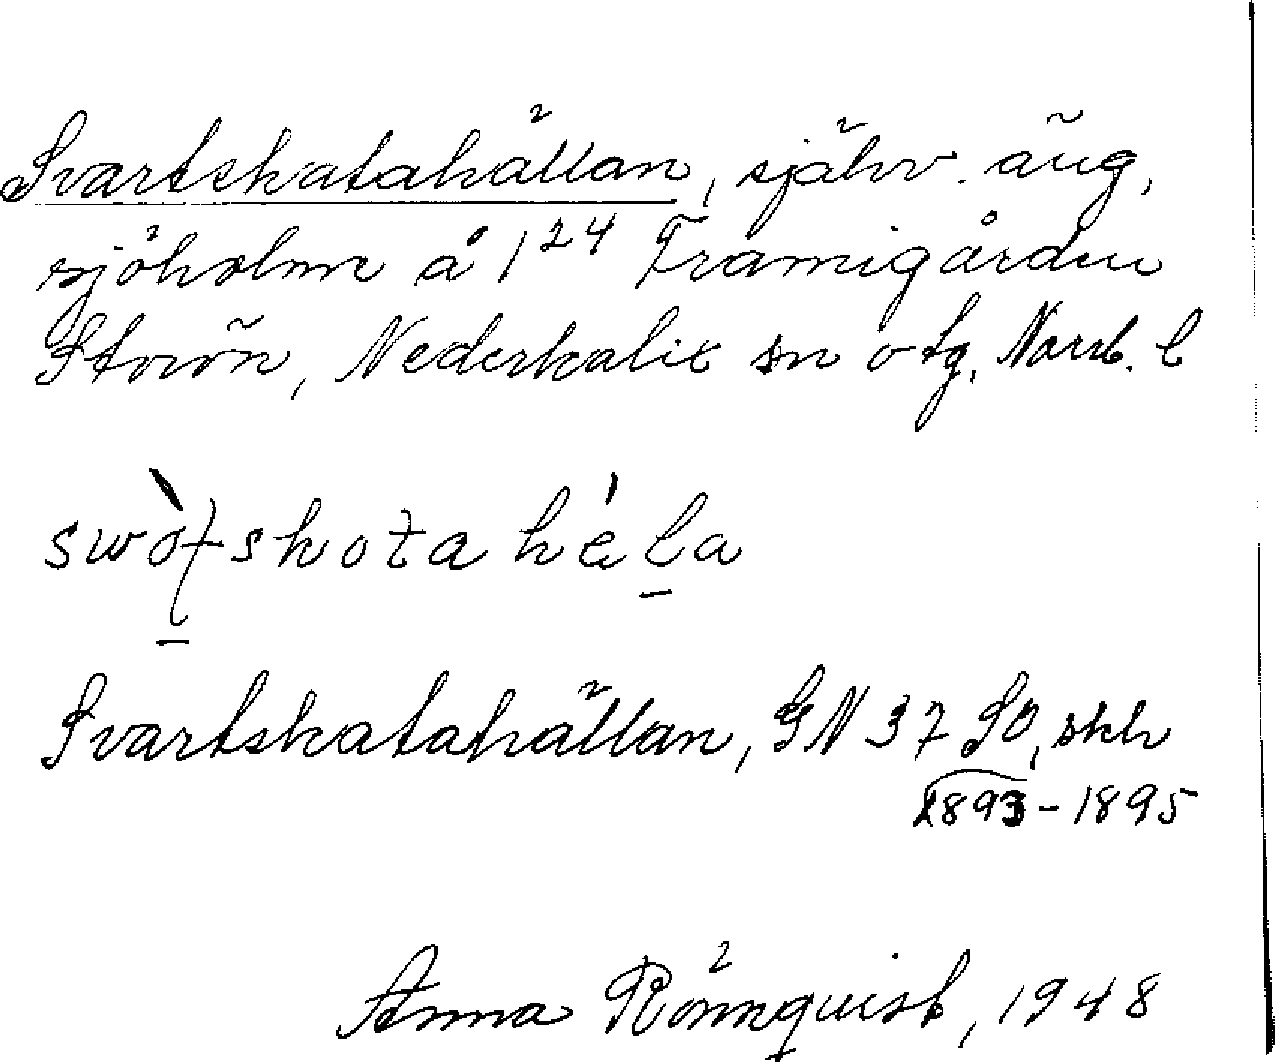 Svartskatahällan, själv. äng,
sjöholme å 1²⁴ Framigården
Storön, Nederkalix sn o tg, Norrb. l
Svartskatahällan, GN 37 SO, skh
1893-1895
Anna Rönnquist, 1948